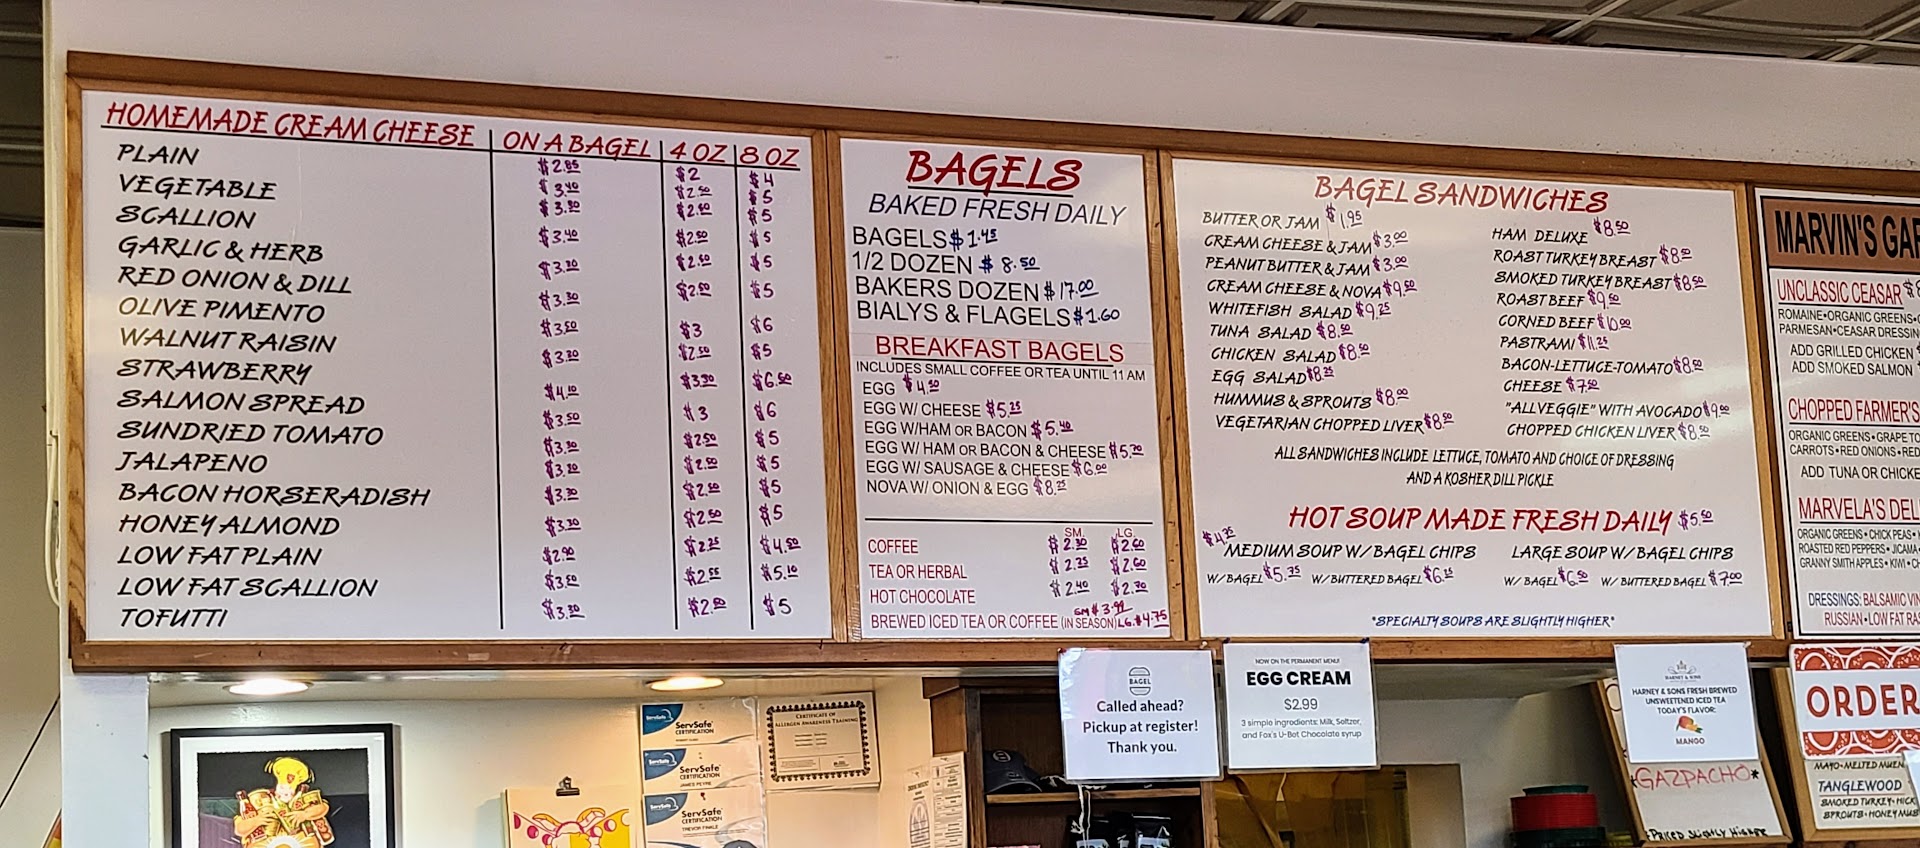 HOMEMADE CREAM CHEESE ON A BAGEL 4 OZ 8 OZ
PLAIN $2.85 $2 $4
VEGETABLE $3.40 $2.50 $5
SCALLION $3.30 $2.50 $5
GARLIC & HERB $3.40 $2.50 $5
RED ONION & DILL $3.30 $2.50 $5
OLIVE PIMENTO $3.30 $2.50 $5
WALNUT RAISIN $3.50 $3 $6
STRAWBERRY $3.30 $2.50 $5
SALMON SPREAD $4.10 $3.30 $6.50
SUNDRIED TOMATO $3.50 $3 $6
JALAPENO $3.30 $2.50 $5
BACON HORSERADISH $3.30 $2.50 $5
HONEY ALMOND $3.30 $2.50 $5
LOW FAT PLAIN $2.90 $2.25 $4.50
LOW FAT SCALLION $3.50 $2.55 $5.10
TOFUTTI $3.30 $2.50 $5
BAGELS
BAKED FRESH DAILY
BAGELS $1.45
1/2 DOZEN $8.50
BAKERS DOZEN $17.00
BIALYS & FLAGELS $1.60
BREAKFAST BAGELS
INCLUDES SMALL COFFEE OR TEA UNTIL 11 AM
EGG $4.50
EGG W/ CHEESE $5.25
EGG W/HAM OR BACON $5.40
EGG W/ HAM OR BACON & CHEESE $5.70
EGG W/ SAUSAGE & CHEESE $6.00
NOVA W/ ONION & EGG $8.25
SM. LG.
COFFEE $2.30 $2.60
TEA OR HERBAL $2.35 $2.60
HOT CHOCOLATE $2.40 $2.70
BREWED ICED TEA OR COFFEE (IN SEASON) SM $3.99 LG. $4.75
BAGEL SANDWICHES
BUTTER OR JAM $1.95
CREAM CHEESE & JAM $3.00
PEANUT BUTTER & JAM $3.00
CREAM CHEESE & NOVA $9.50
WHITEFISH SALAD $9.25
TUNA SALAD $8.50
CHICKEN SALAD $8.50
EGG SALAD $8.25
HUMMUS & SPROUTS $8.00
VEGETARIAN CHOPPED LIVER $8.50
HAM DELUXE $8.50
ROAST TURKEY BREAST $8.50
SMOKED TURKEY BREAST $8.50
ROAST BEEF $9.50
CORNED BEEF $10.00
PASTRAMI $11.25
BACON-LETTUCE-TOMATO $8.50
CHEESE $7.50
"ALLVEGGIE" WITH AVOCADO $9.00
CHOPPED CHICKEN LIVER $8.50
ALL SANDWICHES INCLUDE LETTUCE, TOMATO AND CHOICE OF DRESSING
AND A KOSHER DILL PICKLE
HOT SOUP MADE FRESH DAILY $5.50
$4.25 MEDIUM SOUP W/ BAGEL CHIPS LARGE SOUP W/ BAGEL CHIPS
W/ BAGEL $5.75 W/ BUTTERED BAGEL $6.25 W/ BAGEL $6.50 W/ BUTTERED BAGEL $7.00
*SPECIALTY SOUPS ARE SLIGHTLY HIGHER*
MARVIN'S GAR
UNCLASSIC CEASAR $8
ROMAINE•ORGANIC GREENS•
PARMESAN•CEASAR DRESSIN
ADD GRILLED CHICKEN
ADD SMOKED SALMON
CHOPPED FARMER'S
ORGANIC GREENS•GRAPE TO
CARROTS•RED ONIONS•RED
ADD TUNA OR CHICKE
MARVELA'S DEL
ORGANIC GREENS•CHICK PEAS•
ROASTED RED PEPPERS•JICAMA
GRANNY SMITH APPLES•KIWI•
DRESSINGS: BALSAMIC VIN
RUSSIAN•LOW FAT RA
BAGEL
Called ahead?
Pickup at register!
Thank you.
NOW ON THE PERMANENT MENU!
EGG CREAM
$2.99
3 simple ingredients: Milk, Seltzer,
and Fox's U-Bet Chocolate syrup
HARNEY & SONS
HARNEY & SONS FRESH BREWED
UNSWEETENED ICED TEA
TODAY'S FLAVOR:
MANGO
*GAZPACHO*
PRICED SLIGHTLY HIGHER
ORDER
MAYO•MELTED MUEN
TANGLEWOOD
SMOKED TURKEY•HICK
SPROUTS•HONEY MUS
ServSafe
CERTIFICATION
ServSafe
CERTIFICATION
JAMES PEYRE
ServSafe
CERTIFICATION
TREVOR FINKLE
CERTIFICATE OF
ALLERGEN AWARENESS TRAINING